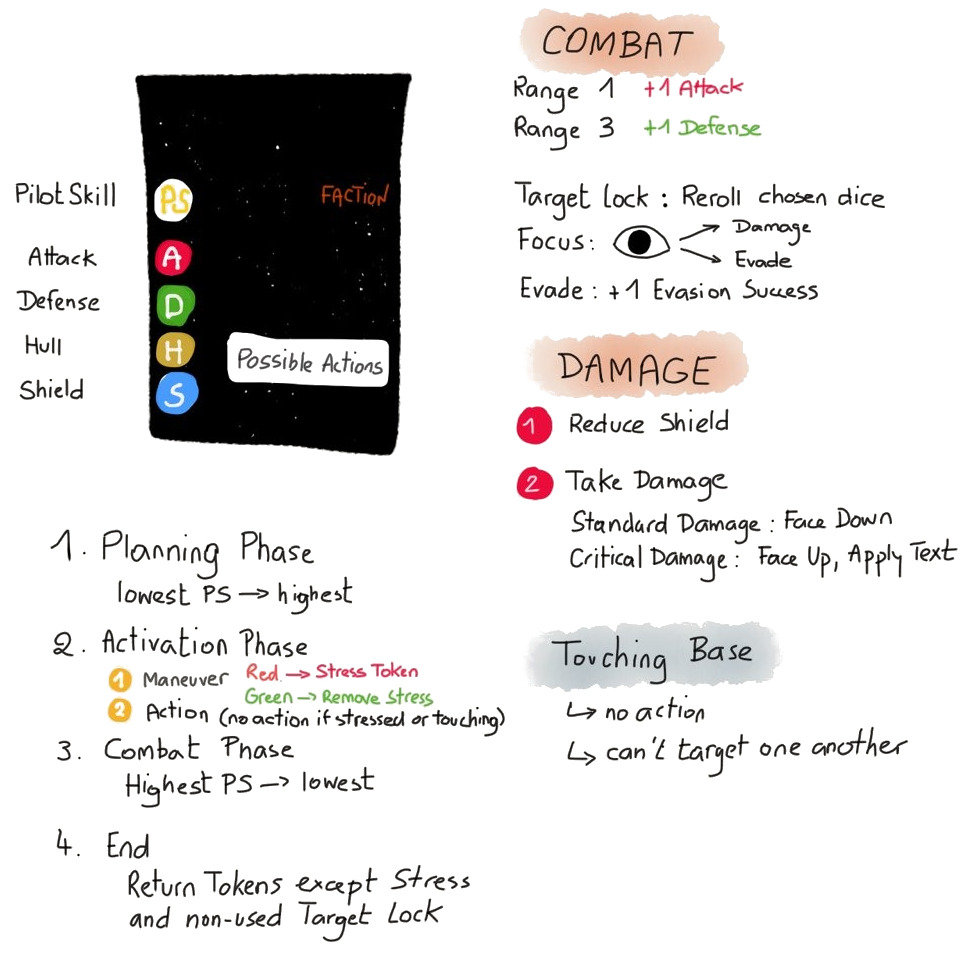 Pilot Skill PS FACTION
Attack A
Defense D
Hull H
Possible Actions
Shield S
1. Planning Phase
lowest PS → highest
2. Activation Phase
1 Maneuver Red → Stress Token
Green → Remove Stress
2 Action (no action if stressed or touching)
3. Combat Phase
Highest PS → lowest
4. End
Return Tokens except Stress
and non-used Target Lock
COMBAT
Range 1 +1 Attack
Range 3 +1 Defense
Target lock : Reroll chosen dice
Focus: → Damage
→ Evade
Evade : +1 Evasion Success
DAMAGE
1 Reduce Shield
2 Take Damage
Standard Damage : Face Down
Critical Damage : Face Up, Apply Text
Touching Base
↳ no action
↳ can't target one another